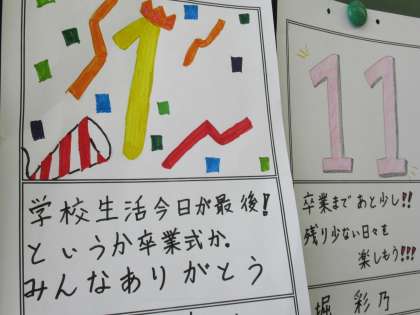 1
学校生活今日が最後!
というか卒業式か.
みんなありがとう
11
卒業まであと少し!!
残り少ない日々を
楽しもう!!!
堀 彩乃